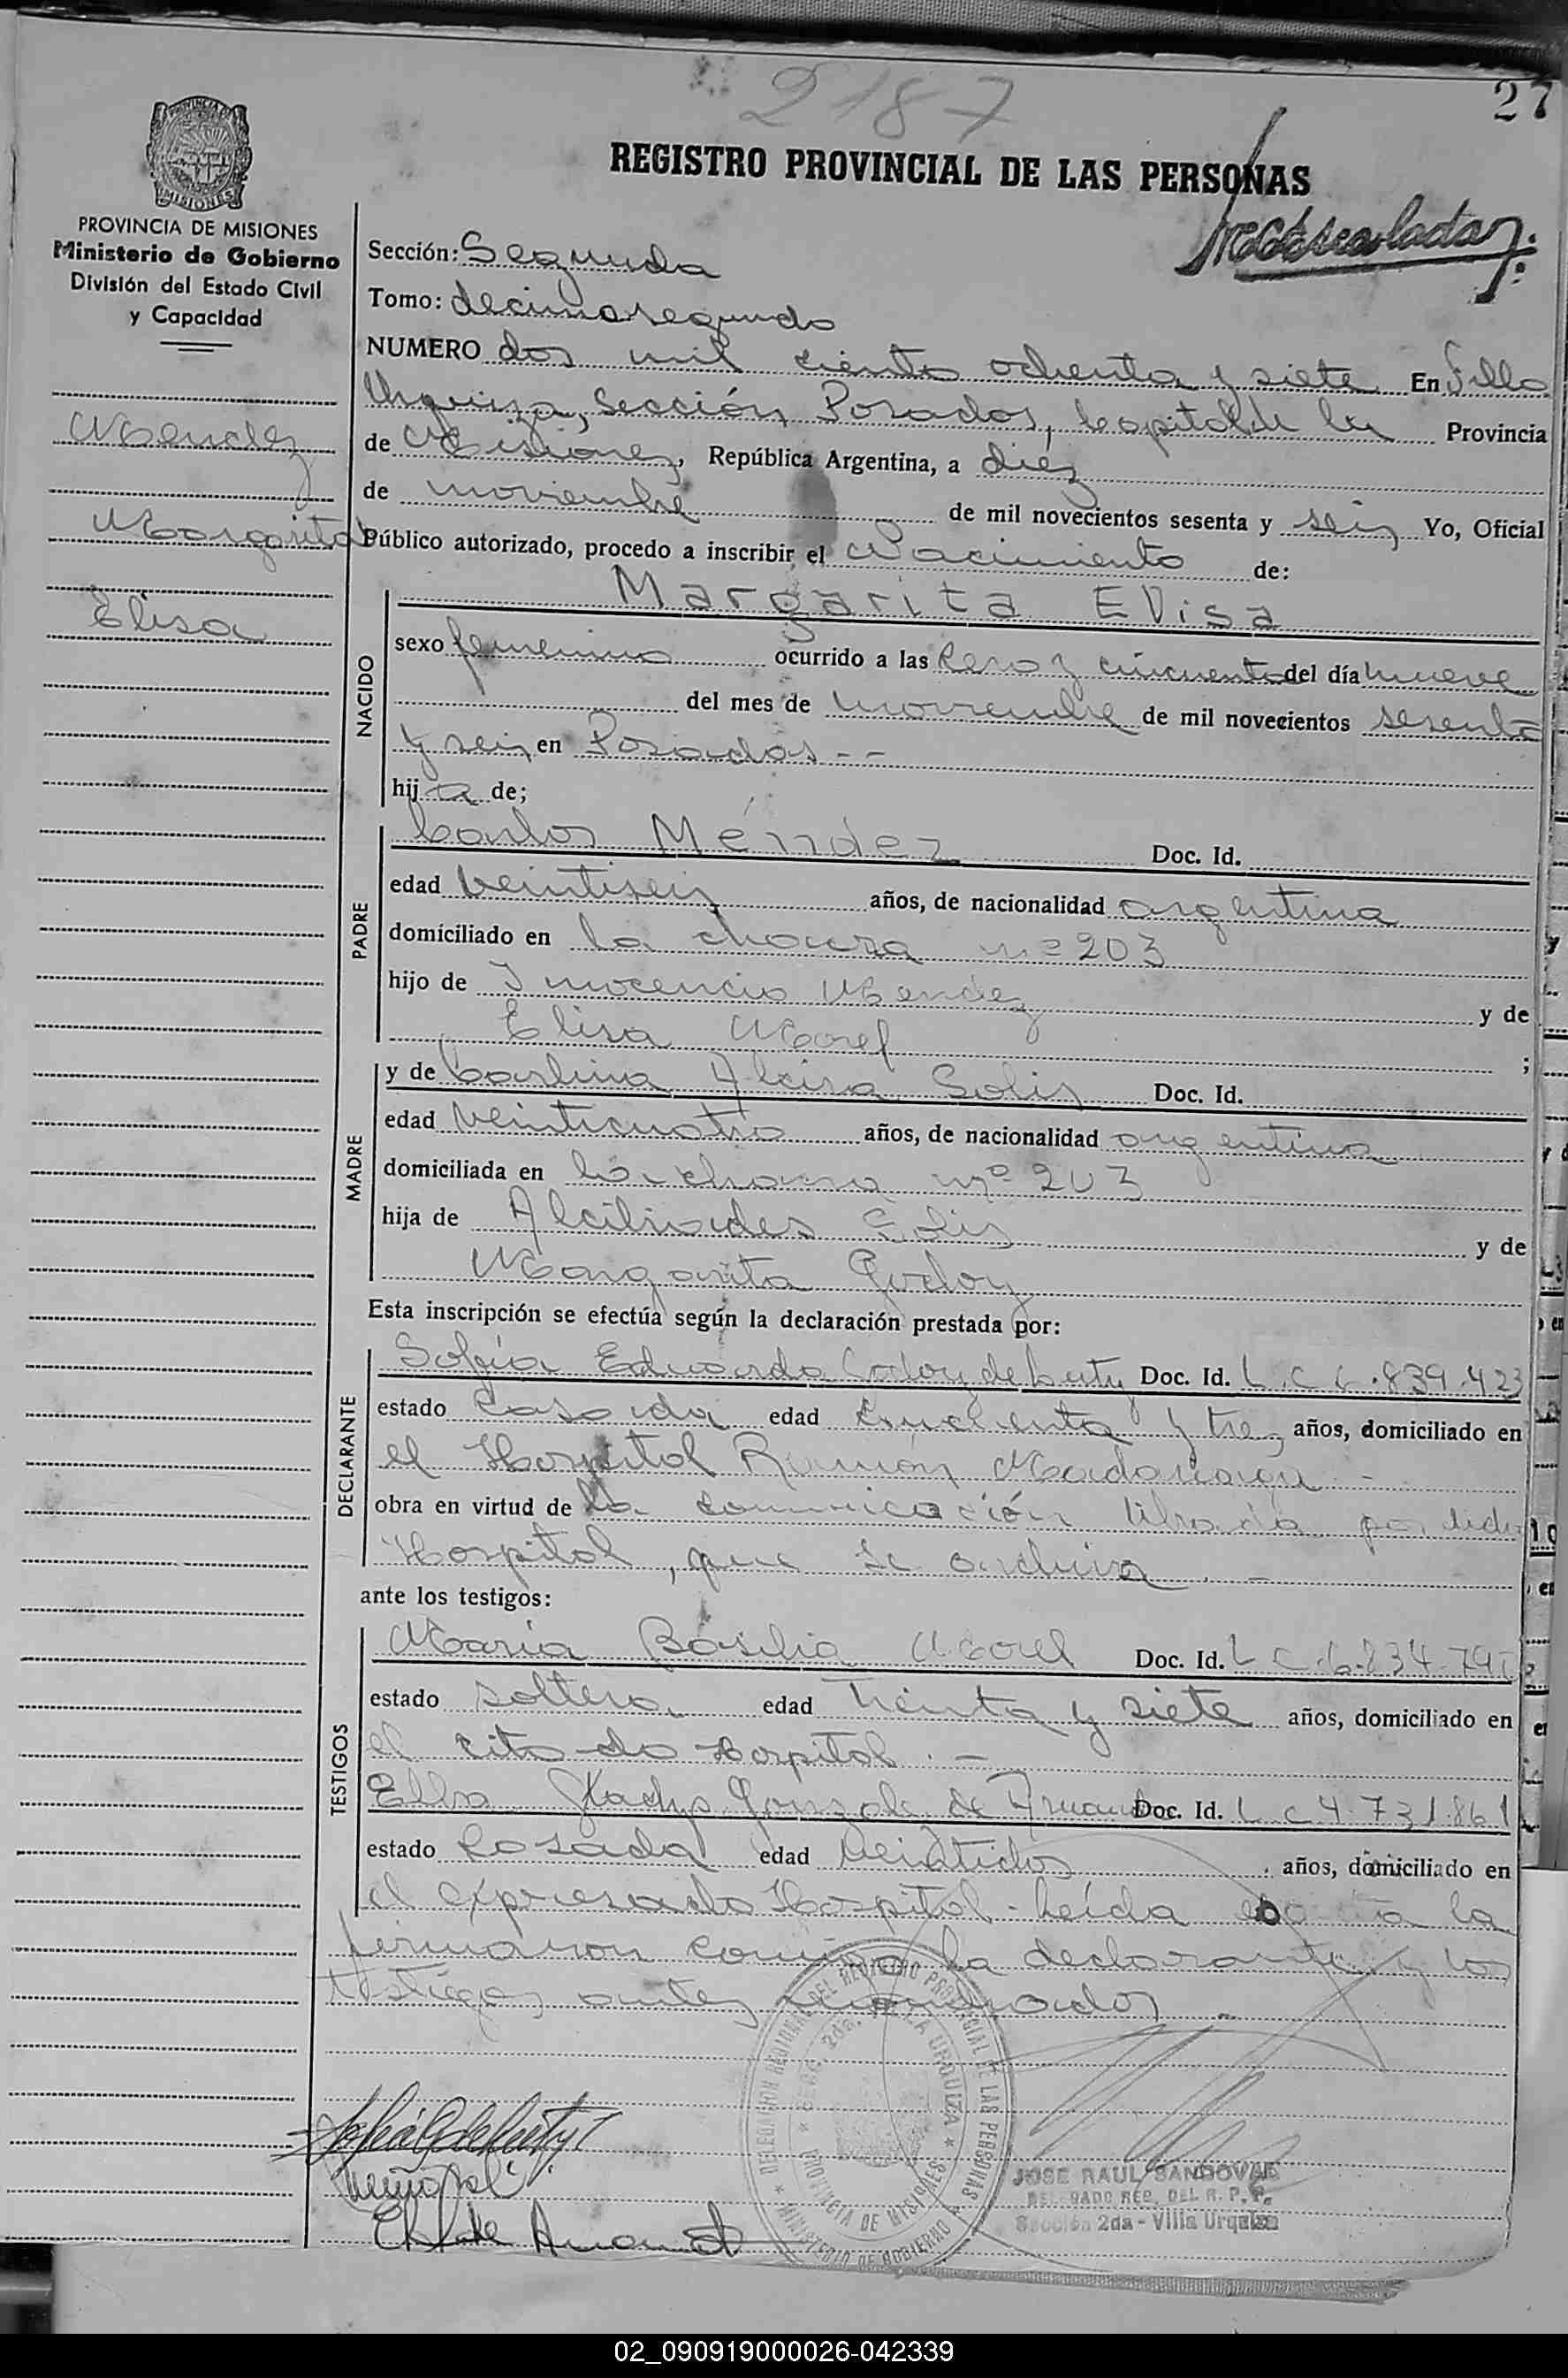 2187
27
REGISTRO PROVINCIAL DE LAS PERSONAS
PROVINCIA DE MISIONES
Ministerio de Gobierno
División del Estado Civil
y Capacidad
Mendez
Margarita
Elisa
Sección: Segunda
Tomo: decimosegundo
NUMERO dos mil ciento ochenta y siete En Villa
Urquiza, Sección Posadas, Capital de la Provincia
de Misiones, República Argentina, a diez
de noviembre de mil novecientos sesenta y seis Yo, Oficial
Público autorizado, procedo a inscribir el Nacimiento de:
Margarita Elisa
NACIDO
sexo femenino ocurrido a las cero y cincuenta del día nueve
del mes de noviembre de mil novecientos sesenta
y seis en Posadas - -
hija de;
PADRE
Carlos Méndez Doc. Id.
edad veintiseis años, de nacionalidad argentina
domiciliado en la chacra nº 203
hijo de Inocencio Mendez y de
Elisa Morel ;
MADRE
y de Carlina Alcira Solis Doc. Id.
edad veinticuatro años, de nacionalidad argentina
domiciliada en la chacra nº 203
hija de Alcibiades Solis y de
Margarita Godoy
Esta inscripción se efectúa según la declaración prestada por:
DECLARANTE
Sofia Eduarda Godoy de Doc. Id. L. C 6.839.423
estado casada edad cincuenta y tres años, domiciliado en
el Hospital Ramón Madariaga -
obra en virtud de la comunicación librada por dicho
Hospital, que se archiva. -
ante los testigos:
TESTIGOS
Maria Basilia Morel Doc. Id. L C 6.834.79
estado soltera edad treinta y siete años, domiciliado en
el citado Hospital. -
Elba Gladys Gonzalez de Doc. Id. L C 4.731.861
estado casada edad veintidos años, domiciliado en
el expresado Hospital - Leída esta acta la
firmaron conmigo la declarante y los
testigos antes nombrados -
DELEGACION REGIONAL DEL REGISTRO PROVINCIAL DE LAS PERSONAS
SECC. 2da. VILLA URQUIZA
PROVINCIA DE MISIONES
MINISTERIO DE GOBIERNO
JOSE RAUL SANDOVAL
DELEGADO REG. DEL R. P. P.
Sección 2da - Villa Urquiza
02_090919000026-042339